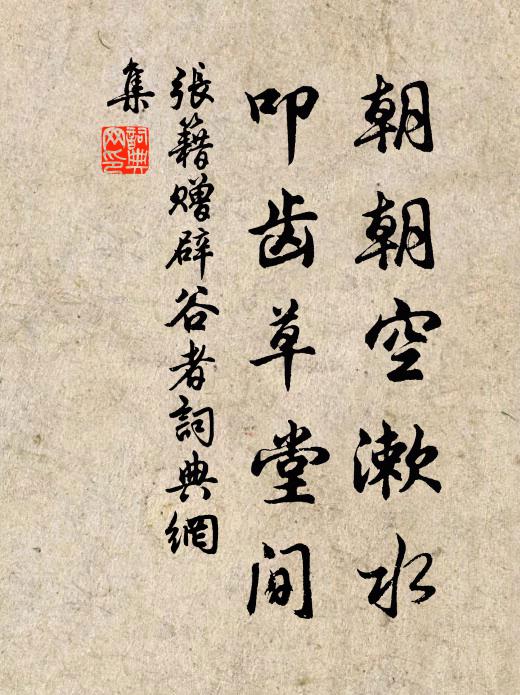 朝朝空漱水
叩齿草堂间
張籍贈辟谷者詞典網
集
詞典
网印